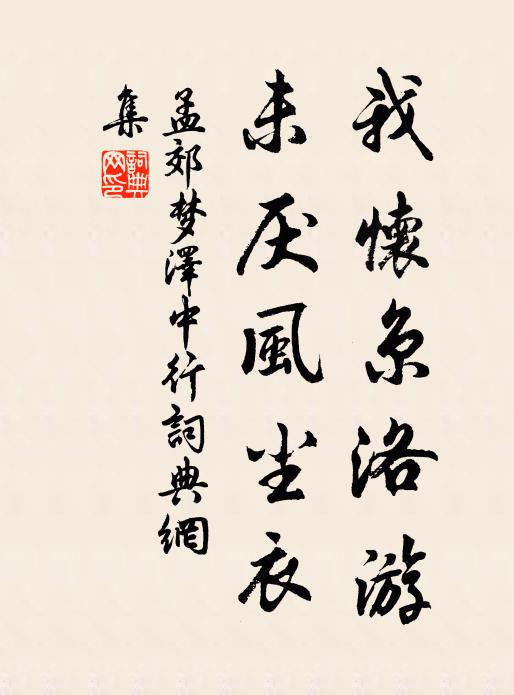 我懷京洛游
未厌風尘衣
孟郊梦澤中行詞典網
集
詞典
网印